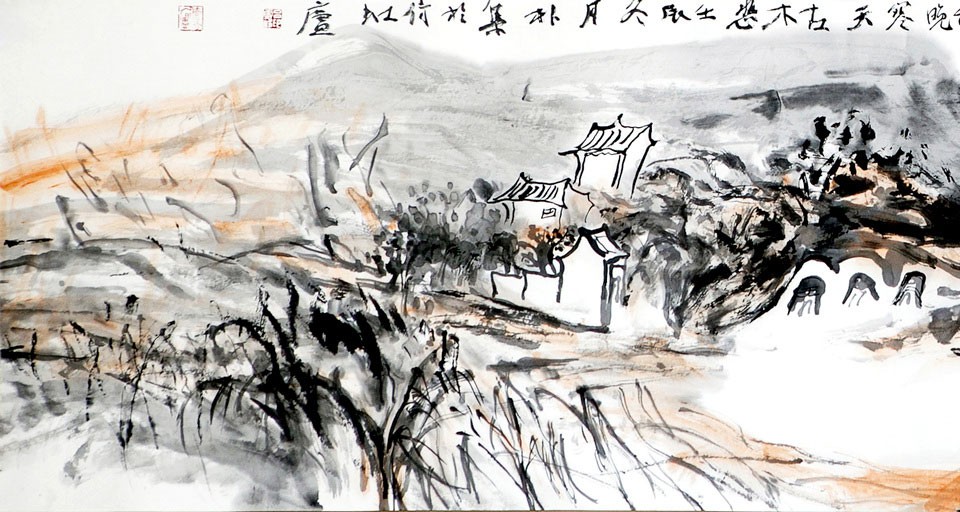 晚寒天古木悲壬辰冬月朴集於廬